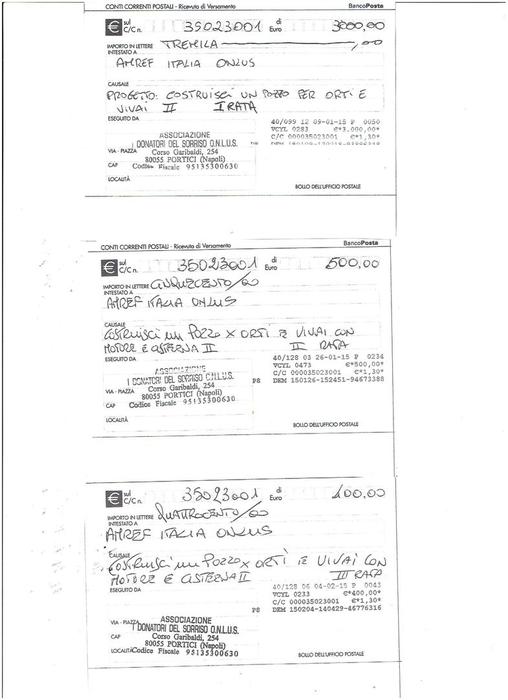 CONTI CORRENTI POSTALI - Ricevuta di Versamento BancoPosta
€ sul C/C n. 35023001 di Euro 3000,00
IMPORTO IN LETTERE TREMILA ,00
INTESTATO A
AMREF ITALIA ONLUS
CAUSALE
PROGETTO: COSTRUISCI UN POZZO PER ORTI E
VIVAI II I RATA
ESEGUITO DA
40/099 12 09-01-15 P 0050
VCYL 0283 €*3.000,00*
C/C 000035023001 €*1,30*
ASSOCIAZIONE
I DONATORI DEL SORRISO O.N.L.U.S.
VIA - PIAZZA Corso Garibaldi, 254
80055 PORTICI (Napoli)
CAP Codice Fiscale 95135300630
LOCALITÀ
BOLLO DELL'UFFICIO POSTALE
CONTI CORRENTI POSTALI - Ricevuta di Versamento BancoPosta
€ sul C/C n. 35023001 di Euro 500,00
IMPORTO IN LETTERE CINQUECENTO/00
INTESTATO A
AMREF ITALIA ONLUS
CAUSALE
COSTRUISCI UN POZZO X ORTI E VIVAI CON
MOTORE E CISTERNA II II RATA
ESEGUITO DA
40/128 03 26-01-15 P 0234
VCYL 0473 €*500,00*
C/C 000035023001 €*1,30*
P8 DEM 150126-152451-94673388
ASSOCIAZIONE
I DONATORI DEL SORRISO O.N.L.U.S.
VIA - PIAZZA Corso Garibaldi, 254
80055 PORTICI (Napoli)
CAP Codice Fiscale 95135300630
LOCALITÀ
BOLLO DELL'UFFICIO POSTALE
€ sul C/C n. 35023001 di Euro 400,00
IMPORTO IN LETTERE QUATTROCENTO/00
INTESTATO A
AMREF ITALIA ONLUS
CAUSALE
COSTRUISCI UN POZZO X ORTI E VIVAI CON
MOTORE E CISTERNA II III RATA
ESEGUITO DA
40/128 06 04-02-15 P 0043
VCYL 0233 €*400,00*
C/C 000035023001 €*1,30*
P8 DEM 150204-140429-46776316
ASSOCIAZIONE
VIA - PIAZZA I DONATORI DEL SORRISO O.N.L.U.S.
CAP Corso Garibaldi, 254
80055 PORTICI (Napoli)
LOCALITÀ Codice Fiscale 95135300630
BOLLO DELL'UFFICIO POSTALE